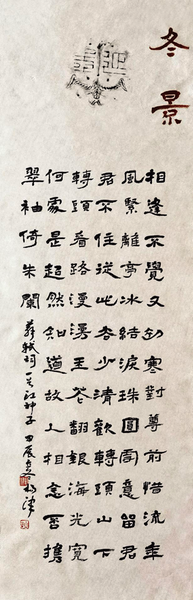 冬景
相逢不覺又初寒對尊前惜流年
風緊離亭冰結淚珠圓雪意留君
君不住從此去少清歡轉頭山下
轉頭看路漫漫玉花翻銀海光寬
何處是超然知道故人相念否攜
翠袖倚朱闌
蘇軾詞一首江神子 甲辰